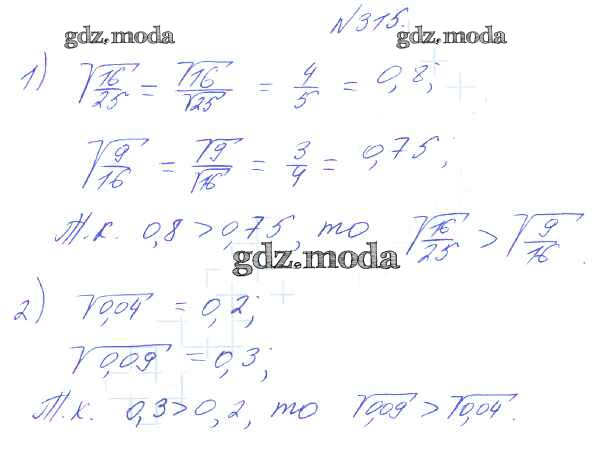 №315.
gdz.moda gdz.moda
1) √16/25 = √16/√25 = 4/5 = 0,8;
√9/16 = √9/√16 = 3/4 = 0,75;
Т.к. 0,8 > 0,75, то √16/25 > √9/16.
gdz.moda
2) √0,04 = 0,2;
√0,09 = 0,3;
Т.к. 0,3 > 0,2, то √0,09 > √0,04.